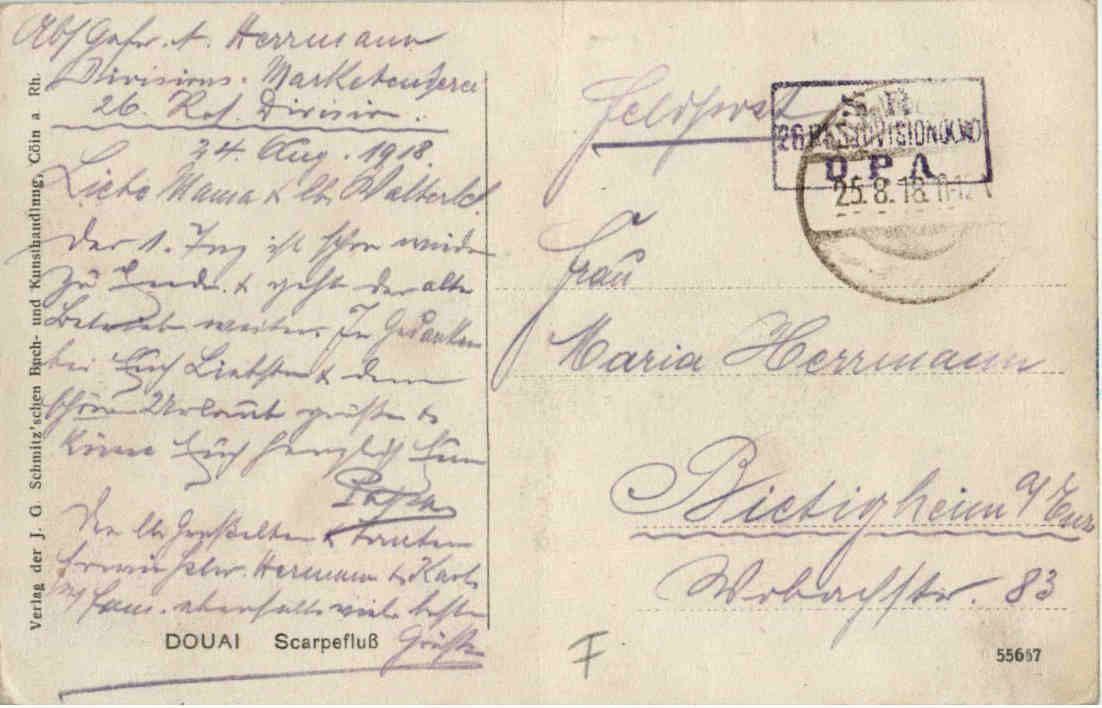 Abs Gefr. A. Herrmann
Divisions. Marketenderei
26. Res. Division.
24. Aug. 1918.
Liebe Mama & lb. Walterle!
Der 1. Tag ist schon wieder
zu Ende & geht der alte
Betrieb weiter. In Gedanken
bei Euch Liebsten & dem
schönen Urlaub grüßt &
Euch herzlich Euer
Papa
Die lb. Großeltern & Tanten
sowie Herrmann & Karl
Fam. ebenfalls viele beste
Grüße
Verlag der J. G. Schmitz'schen Buch- und Kunsthandlung, Cöln a. Rh.
DOUAI Scarpefluß
Feldpost
S. B.
26. RES. DIVISION (K.W.)
D P A
25.8.18. 11-12
Frau
Maria Herrmann
Bietigheim a/Enz
Wobachstr. 83
F
55667